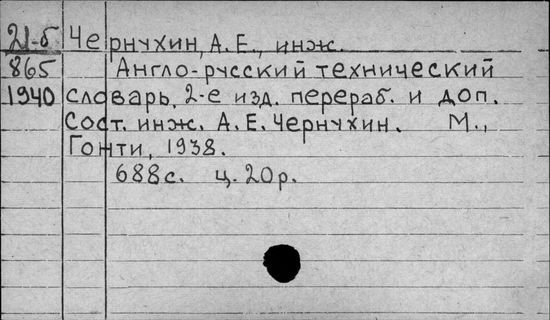 21-б Чернухин, А.Е., инж.
865 Англо-русский технический
1940 словарь, 2-е изд. перераб. и доп.
Сост. инж. А.Е. Чернухин. М.,
Гонти, 1938.
688с. ц. 20р.